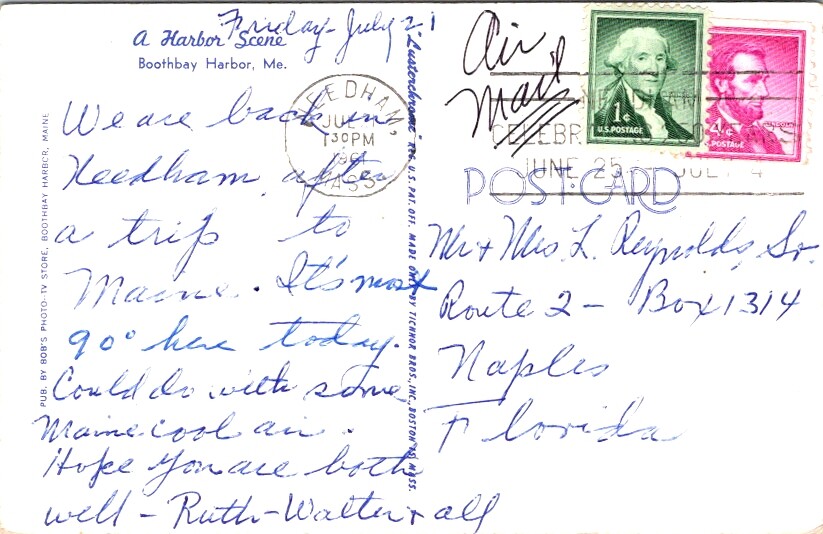 Friday - July 21
A Harbor Scene
Boothbay Harbor, Me.
We are back in
Needham, after
a trip to
Maine. It's most
90° here today.
Could do with some
Maine cool air.
Hope you are both
well - Ruth - Walter + all
PUB. BY BOB'S PHOTO-TV STORE, BOOTHBAY HARBOR, MAINE
"Lusterchrome" REG. U.S. PAT. OFF. MADE ONLY BY TICHNOR BROS., INC., BOSTON 15, MASS.
NEEDHAM,
JUL
1 30 PM
MASS
Air
Mail
1¢
U.S. POSTAGE
LINCOLN
4¢
POSTAGE
NEEDHAM
CELEBR
JUNE 25 - JULY 4
POST CARD
Mr + Mrs. L. Reynolds, Sr.
Route 2 - Box 1314
Naples
Florida